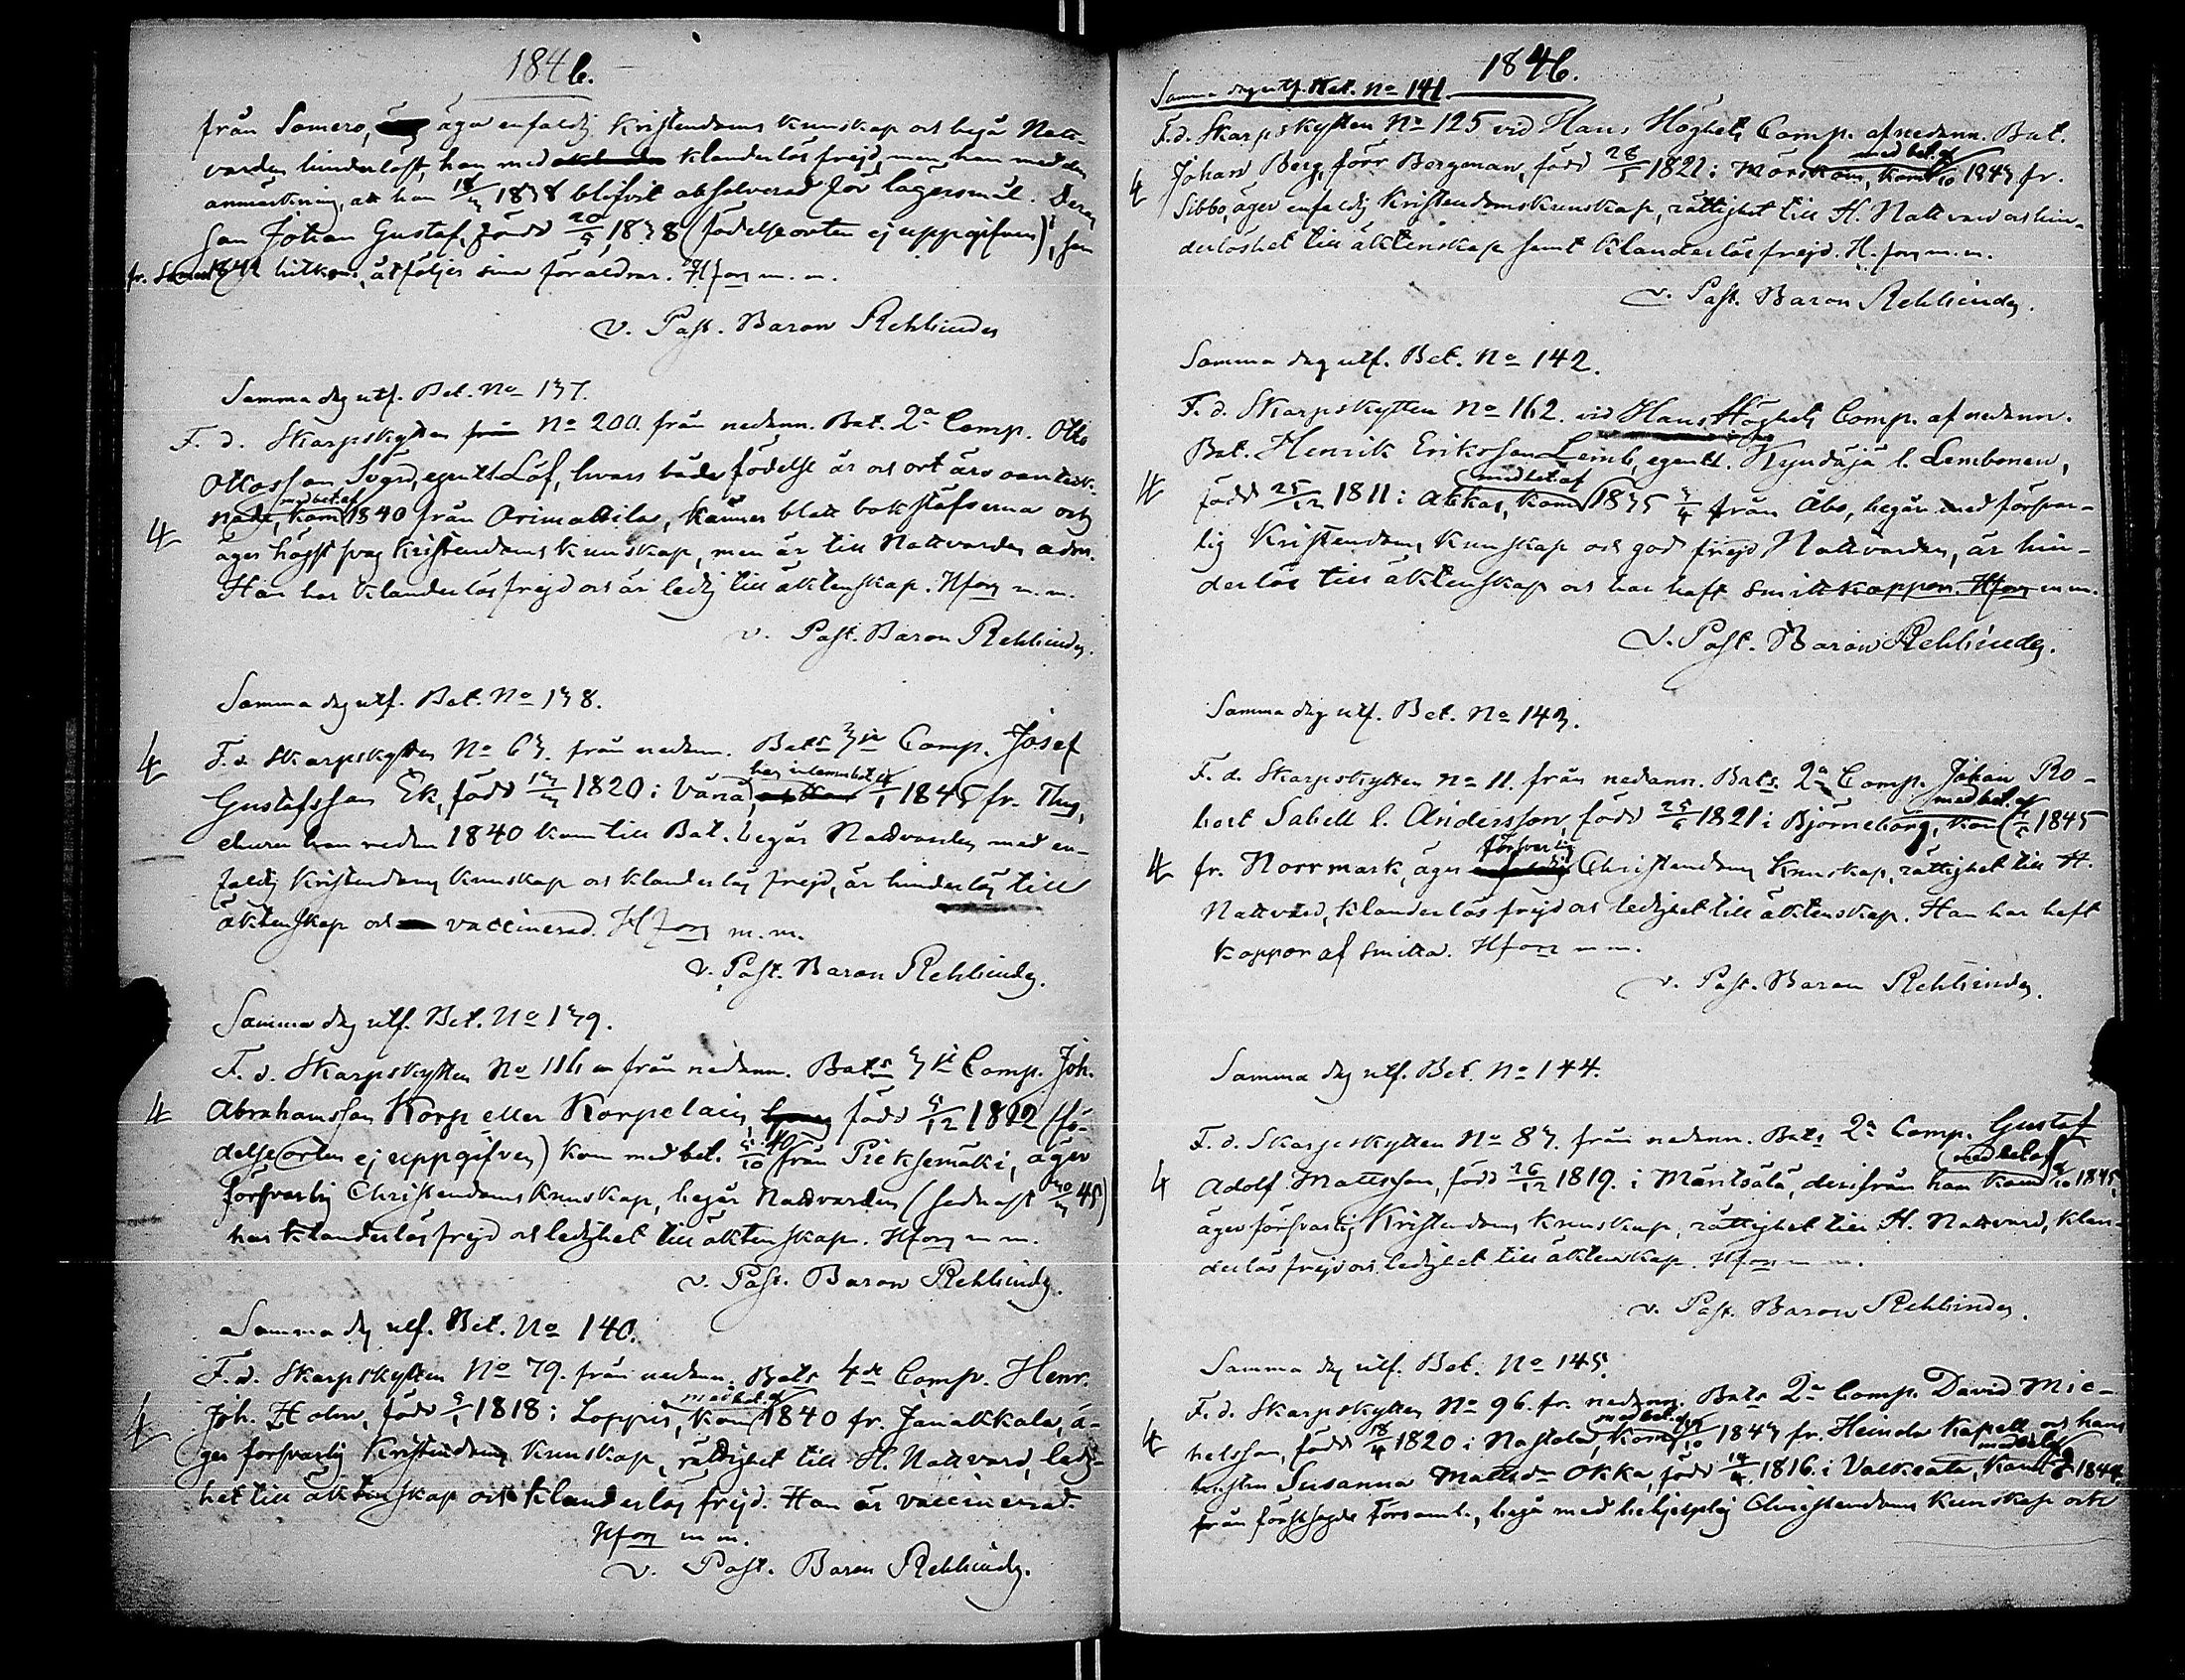 1846.
från Somero, äga enfaldig Kristendoms kunskap och begå Natt-
varden hinderlöst, hon med klanderlös frejd, men han med den
anmärkning, att han 1838 blifvit absolverad för lägersmål. Deras
son Johan Gustaf, född 20/5 1838 (födelseorten ej uppgifven), som
fr. Somero 1842 hitkom, åtföljer sina föräldrar. Hfors m. m.
v. Past. Baron Rehbinder
Samma dag utf. Bet. No 137.
F. d. Skarpskytten från No 200. från nedann. Bat. 2a Comp. Otto
Ottosson Svärd, egentl. Löf, hvars både födelse år och ort äro oanteck-
nade, kom med bet. af 1840 från Orimattila, känner blott bokstäfverna och
äger högst svag Kristendoms kunskap, men är till Nattvarden adm.
Han har klanderlös frejd och är ledig till äktenskap. Hfors m. m.
v. Past. Baron Rehbinder.
Samma dag utf. Bet. No 138.
F. d. Skarpskytten No 63. från nedann. Bats 3je Comp. Josef
Gustafsson Ek, född 1820 i Vånå, har inlemnat bet. af 1/1 1845 fr. Thus,
churu han redan 1840 kom till Bat. begår Nattvarden med en-
faldig Kristendoms kunskap och klanderlös frejd, är hinderlös till
äktenskap och vaccinerad. Hfors m. m.
v. Past. Baron Rehbinder.
Samma dag utf. Bet. No 139.
F. d. Skarpskytten No 116 från nedann. Bats 3je Comp. Joh.
Abrahamsson Korp eller Korpelain, född 3/12 1812 (fö-
delseorten ej uppgifven) kom med bet. 3/10 40 från Pieksemäki, äger
försvarlig Christendoms kunskap, begår Nattvarden (sednast 45)
har klanderlös frejd och ledighet till äktenskap. Hfors m. m.
v. Past. Baron Rehbinder.
Samma dag utf. Bet. No 140.
F. d. Skarpskytten No 79. från nedann. Bats 4de Comp. Henr.
Joh. Holm, född 3/1 1818 i Loppis, kom med bet. af 1840 fr. Janakkala, ä-
ger försvarlig Kristendoms kunskap, rättighet till H. Nattvard, ledig-
het till äktenskap och klanderlös frejd. Han är vaccinerad.
Hfors m. m.
v. Past. Baron Rehbinder.
1846.
Samma dag utf. Bet. No 141.
F. d. Skarpskytten No 125 vid Hans Höghets Comp. af nedann. Bat.
Johan Berg, förr Bergman, född 28/1 1821 i Mörskom, kom med bet. af 1843 fr.
Sibbo, äger enfaldig Kristendomskunskap, rättighet till H. Nattvard och hin-
derlöshet till äktenskap samt klanderlös frejd. H.fors m. m.
v. Past. Baron Rehbinder.
Samma dag utf. Bet. No 142.
F. d. Skarpskytten No 162. vid Hans Höghets Comp. af nedann.
Bat. Henrik Eriksson Lemb, egentl. l. Lembonen,
född 25/12 1811 i Akkas, kom med bet. af 1835 3/4 från Åbo, begår med försvar-
lig Kristendoms kunskap och god frejd Nattvarden, är hin-
derlös till äktenskap och har haft smittkoppor. Hfors m m.
v. Past. Baron Rehbinder.
Samma dag utf. Bet. No 143.
F. d. Skarpskytten No 11. från nedann. Bats 2a Comp. Johan Ro-
bert Sabell l. Andersson, född 25/6 1821 i Björneborg, kom med bet. af 1845
fr. Norrmark, äger försvarlig Christendoms kunskap, rättighet till H.
Nattvard, klanderlös frejd och ledighet till äktenskap. Han har haft
koppor af smitta. Hfors m m.
v. Past. Baron Rehbinder.
Samma dag utf. Bet. No 144.
F. d. Skarpskytten No 83. från nedann. Bats 2a Comp. Gustaf
Adolf Mattsson, född 26/12 1819. i Mäntsälä, derifrån han kom med bet. af 1845,
äger försvarlig Kristendoms kunskap, rättighet till H. Nattvard, klan-
derlös frejd och ledighet till äktenskap. Hfors m m.
v. Past. Baron Rehbinder.
Samma dag utf. Bet. No 145.
F. d. Skarpskytten No 96. fr. nedann. Bats 2a Comp. David Mic-
helsson, född 18/4 1820 i Nastola, kom med bet. af 1843 fr. Heinola Kapell och hans
hustru Susanna Mattsdr Okka, född 14/4 1816. i Valkeala, kom med bet. af 1844.
från förstsagde Församl., begå med behjelplig Christendoms kunskap och